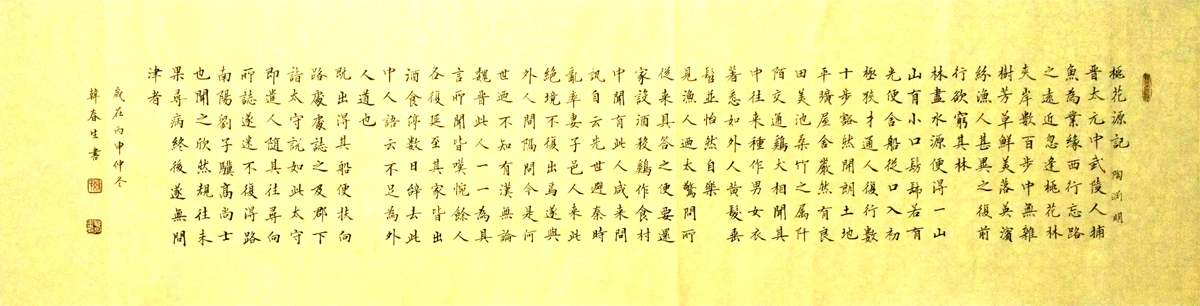 桃花源記 陶淵明
晉太元中武陵人捕
魚為業緣西行忘路
之遠近忽逢桃花林
夾岸數百步中無雜
樹芳草鮮美落英濱
紛漁人甚異之復前
行欲窮其林
林盡水源便得一山
山有小口髣髴若有
光便舍船從口入初
極狹才通人復行數
十步豁然開朗土地
平曠屋舍嚴然有良
田美池桑竹之属阡
陌交通鷄犬相聞其
中往来種作男女衣
著悉如外人黄髮垂
髫並怡然自樂
見漁人迺大驚問所
從来具答之便要還
家設酒殺鷄作食村
中聞有此人咸来問
訊自云先世避秦時
亂率妻子邑人来此
絶境不復出焉遂與
外人間隔問今是何
世迺不知有漢無論
魏晉此人一一為具
言所聞皆嘆惋餘人
各復延至其家皆出
酒食停數日辭去此
中人語云不足為外
人道也
既出得其船便扶向
路處處誌之及郡下
詣太守説如此太守
即遣人隨其往尋向
所誌遂迷不復得路
南陽劉子驥高尚士
也聞之欣然規往未
果尋病終後遂無問
津者
歲在丙申仲冬
韓春生書